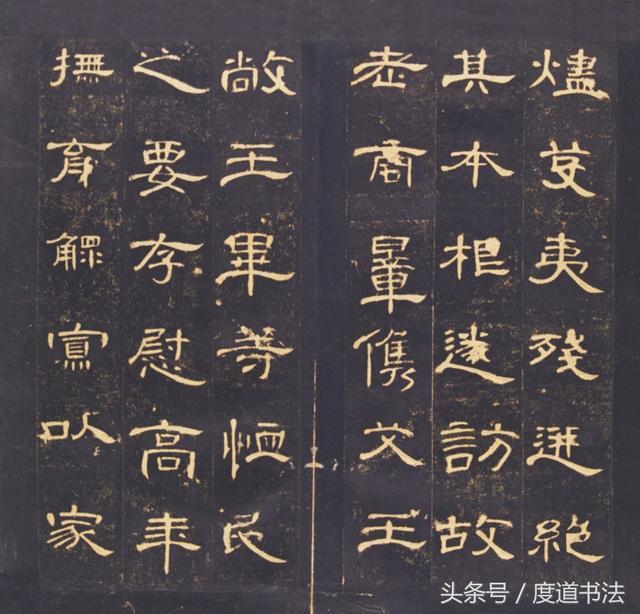 燼芟夷殘迸絕
其本柢遂訪故
老商量儁乂王
敞王畢等恤民
之要存慰高年
撫育鰥寡以家
头条号 / 度道书法